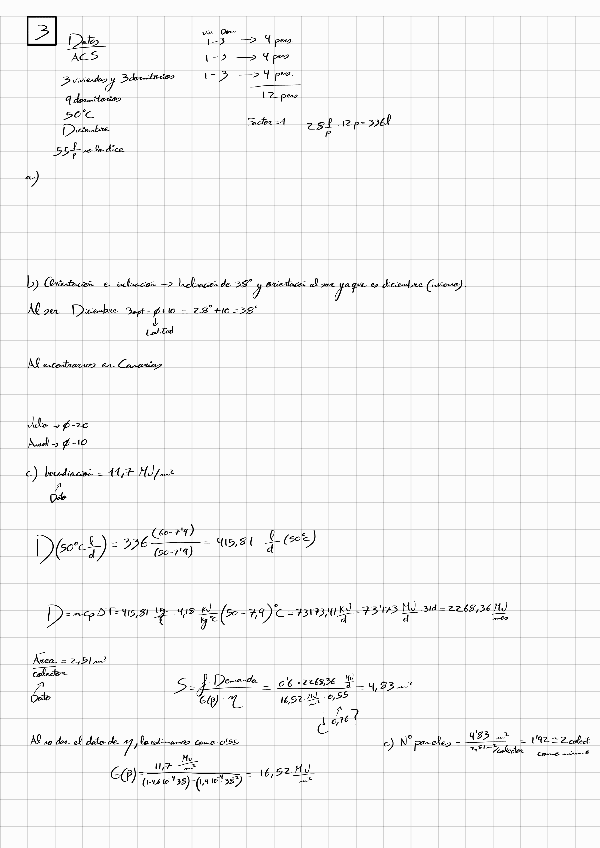 3
Datos
ACS
3 viviendas y 3 dormitorios
9 dormitorios
50°C
Diciembre
55 l/p no lo dice
viv Dor
1-3 → 4 pers
1-3 → 4 pers
1-3 → 4 pers.
12 pers
Factor = 1 28 l/p · 12 p = 336 l
a.)
b) Orientación e inclinación → Inclinación de 38° y orientación al sur ya que es diciembre (invierno).
Al ser Diciembre βopt = ϕ+10 = 28°+10 = 38°
Latitud
Al encontrarnos en Canarias
→ ϕ-20
Anual → ϕ-10
c.) Irradiación = 11,7 MJ/m²
Dato
D(50°C l/d) = 336 (60-7'9)/(50-7'9) = 415,81 l/d (50°C)
D = m·Cp ΔT = 415,81 kg/d · 4,18 kJ/kg°C (50-7,9)°C = 73173,41 kJ/d = 73'173 MJ/d · 31d = 2268,36 MJ/mes
Área colector = 2,51 m²
Dato
S = f Demanda / G(β) · η = 0'6 · 2268,36 / 16,52 · 0,55 = 4,83 m²
¿0,76?
Al no dar el dato de η, lo estimamos como
G(β) = 11,7 MJ/m² / (1-4,6·10⁻⁴·38)-(1,4·10⁻⁴·38²) = 16,52 MJ/m²
c) Nº paneles = 4'83 m² / 2,51 m²/colector = 1'92 = 2 colect
como mínimo